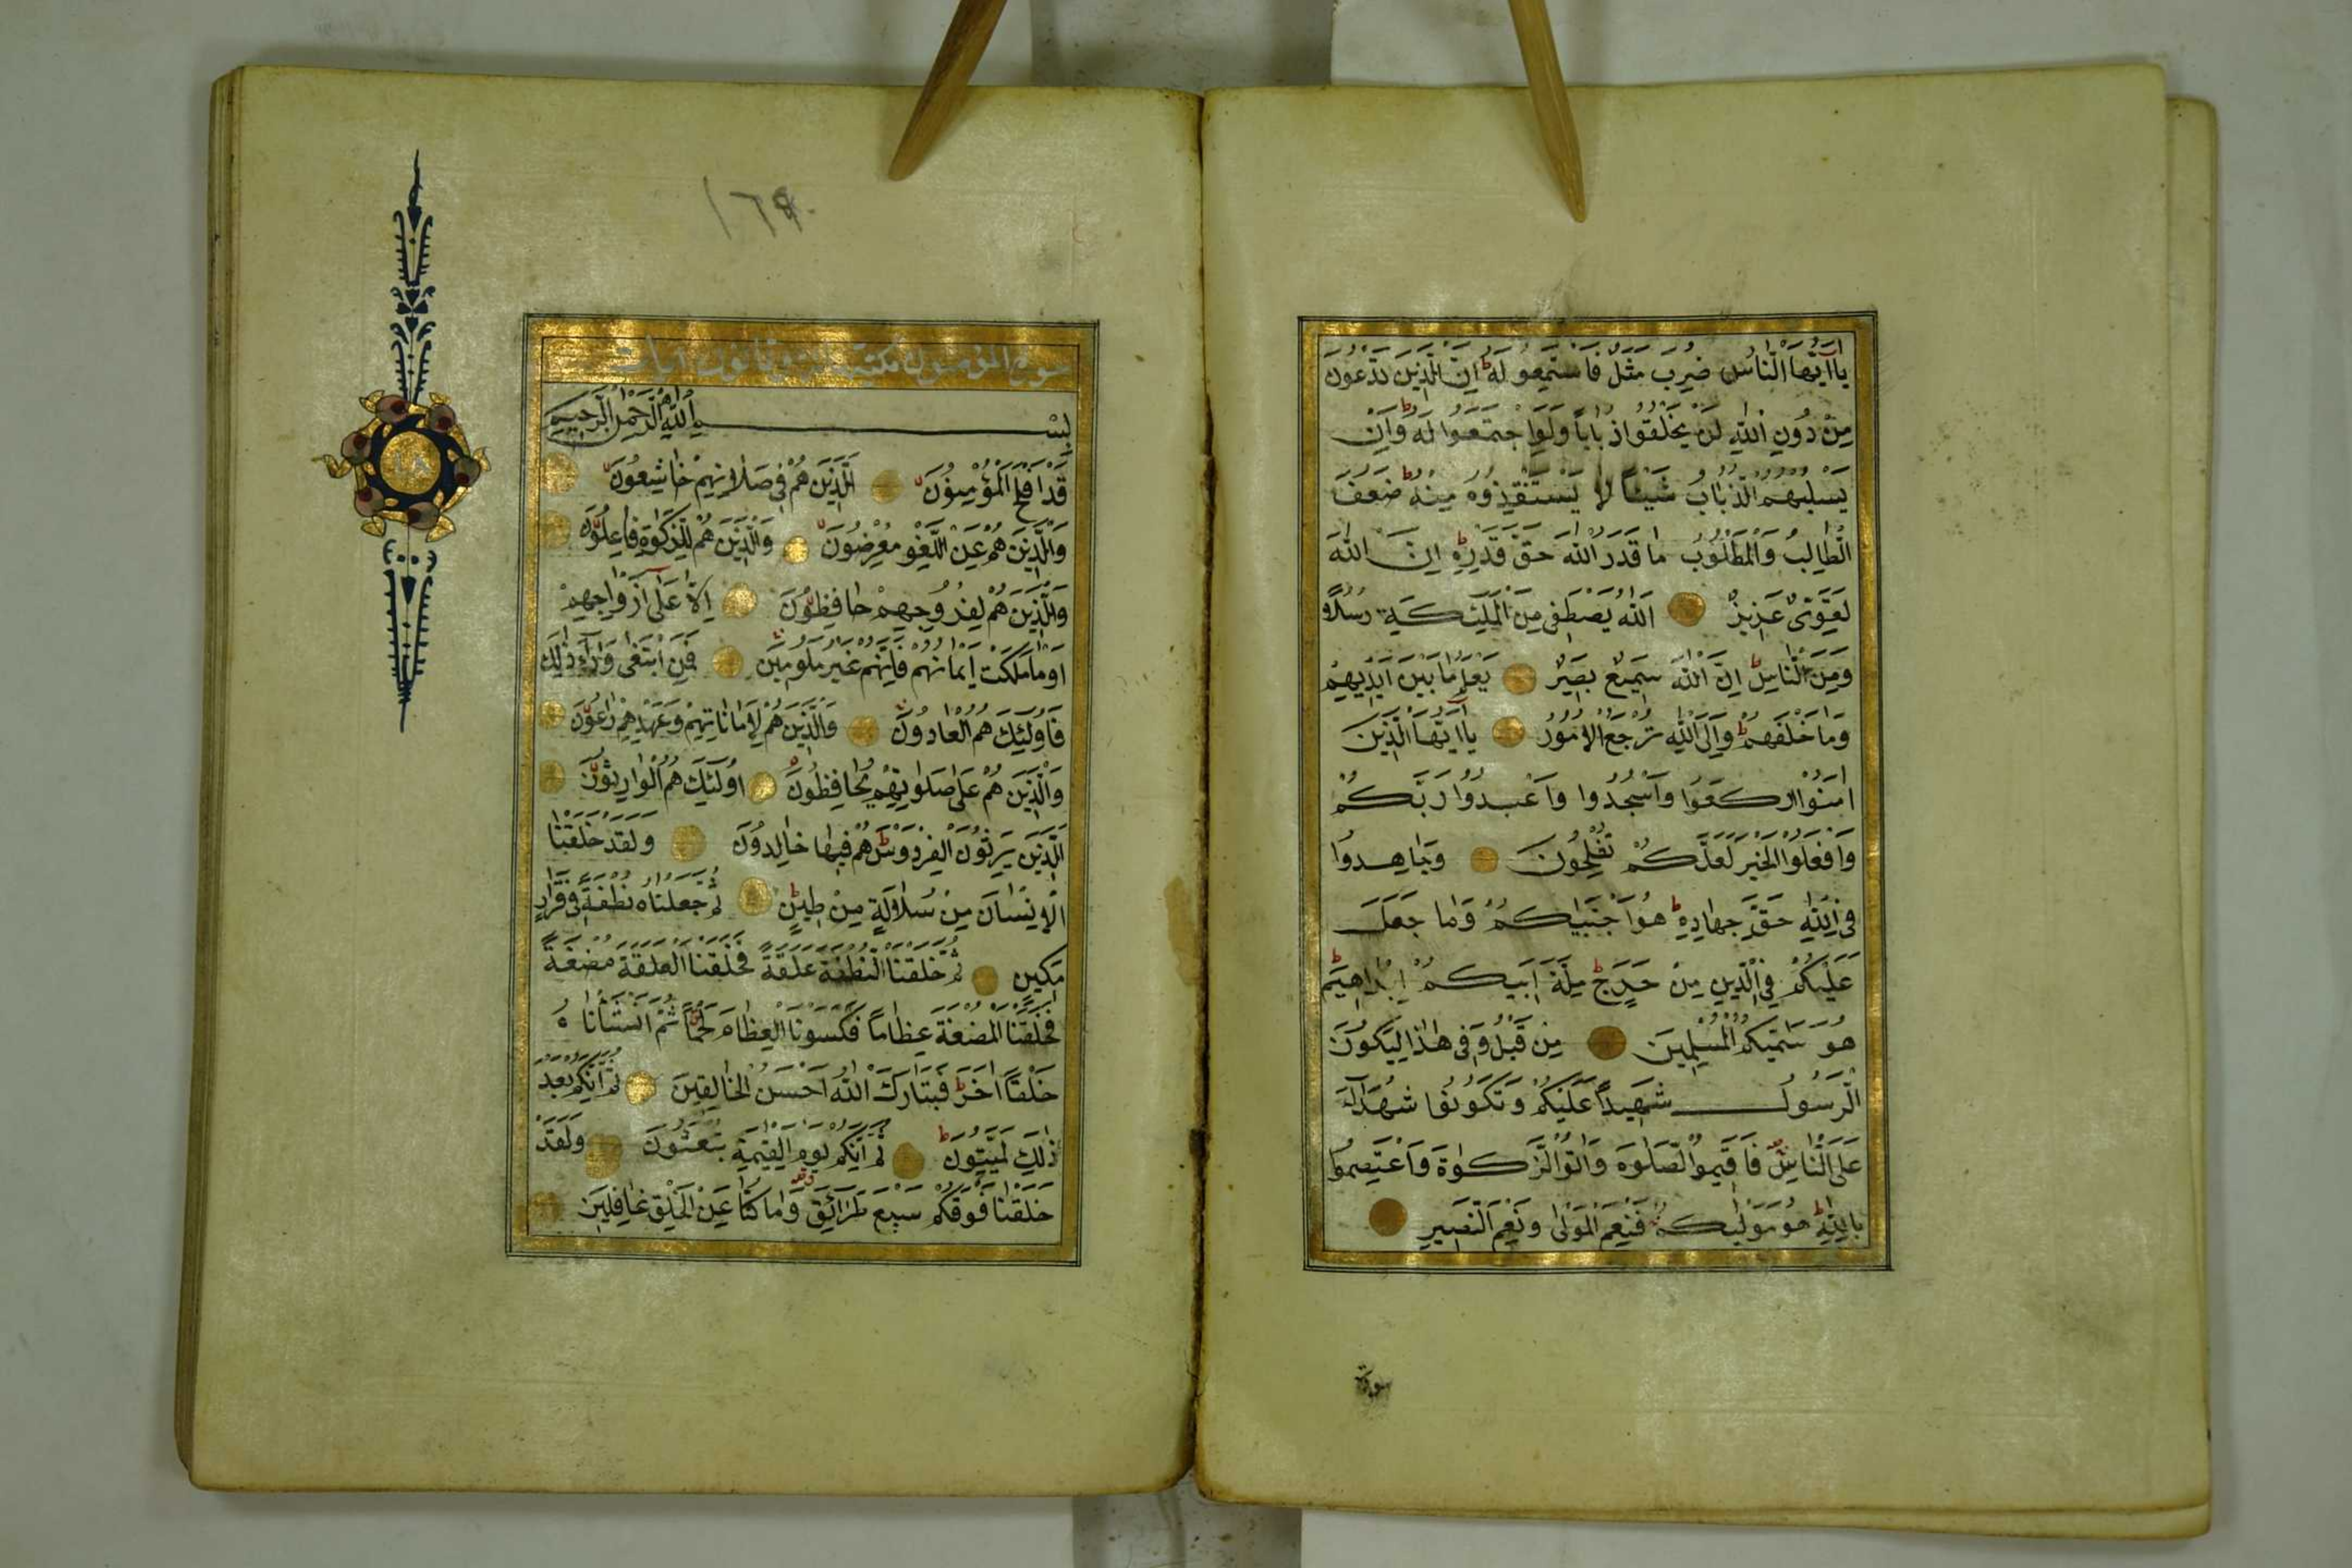 يَا اَيُّهَا النَّاسُ ضُرِبَ مَثَلٌ فَاسْتَمِعُو لَهُ ط اِنَّ الَّذِينَ تَدْعُونَ
مِنْ دُونِ اللّٰهِ لَنْ يَخْلُقُوا ذُبَاباً وَلَوِ اجْتَمَعُوا لَهُ ط وَاِنْ
يَسْلُبْهُمُ الذُّبَابُ شَيْئًا لَا يَسْتَنْقِذُوهُ مِنْهُ ط ضَعُفَ
الطَّالِبُ وَالْمَطْلُوبُ مَا قَدَرُ اللّٰهَ حَقَّ قَدْرِهِ ط اِنَّ اللّٰهَ
لَقَوِىٌّ عَزِيزٌ اَللّٰهُ يَصْطَفِى مِنَ الْمَلٰئِكَةِ رُسُلًا و
وَمِنَ النَّاسِ ط اِنَّ اللّٰهَ سَمِيعٌ بَصِيرٌ يَعْلَمُ مَا بَيْنَ اَيْدِيهِمْ
وَمَا خَلْفَهُمْ ط وَاِلَى اللّٰهِ تُرْجَعُ الْاُمُورُ يَا اَيُّهَا الَّذِينَ
اٰمَنُوا ارْكَعُوا وَاسْجُدُوا وَاعْبُدُوا رَبَّكُمْ
وَافْعَلُوا الْخَيْرَ لَعَلَّكُمْ تُفْلِحُونَ وَجَاهِدُوا
فِى اللّٰهِ حَقَّ جِهَادِهِ ط هُوَ اجْتَبٰيكُمْ وَمَا جَعَلَ
عَلَيْكُمْ فِى الدِّينِ مِنْ حَرَجٍ ط مِلَّةَ اَبِيكُمْ اِبْرَاهِيمَ ط
هُوَ سَمّٰيكُمُ الْمُسْلِمِينَ مِنْ قَبْلُ وَفِى هٰذَا لِيَكُونَ
الرَّسُولُ شَهِيداً عَلَيْكُمْ وَتَكُونُوا شُهَدَاءَ
عَلَى النَّاسِ فَاَقِيمُوا الصَّلٰوةَ وَاٰتُوا الزَّكٰوةَ وَاعْتَصِمُوا
بِاللّٰهِ ط هُوَ مَوْلٰيكُمْ فَنِعْمَ الْمَوْلٰى وَنِعْمَ النَّصِيرِ
سورة
١٦٩
سورة المؤمنون مكية وثمانون آيات
بِسْمِ اللّٰهِ الرَّحْمٰنِ الرَّحِيمِ
قَدْ اَفْلَحَ الْمُؤْمِنُونَ اَلَّذِينَ هُمْ فِى صَلَاتِهِمْ خَاشِعُونَ
وَالَّذِينَ هُمْ عَنِ اللَّغْوِ مُعْرِضُونَ وَالَّذِينَ هُمْ لِلزَّكٰوةِ فَاعِلُونَ
وَالَّذِينَ هُمْ لِفُرُوجِهِمْ حَافِظُونَ اِلَّا عَلٰى اَزْوَاجِهِمْ
اَوْ مَا مَلَكَتْ اَيْمَانُهُمْ فَاِنَّهُمْ غَيْرُ مَلُومِينَ فَمَنِ ابْتَغٰى وَرَاءَ ذٰلِكَ
فَاُولٰئِكَ هُمُ الْعَادُونَ وَالَّذِينَ هُمْ لِاَمَانَاتِهِمْ وَعَهْدِهِمْ رَاعُونَ
وَالَّذِينَ هُمْ عَلٰى صَلَوَاتِهِمْ يُحَافِظُونَ اُولٰئِكَ هُمُ الْوَارِثُونَ
اَلَّذِينَ يَرِثُونَ الْفِرْدَوْسَ ط هُمْ فِيهَا خَالِدُونَ وَلَقَدْ خَلَقْنَا
الْاِنْسَانَ مِنْ سُلَالَةٍ مِنْ طِينٍ ثُمَّ جَعَلْنَاهُ نُطْفَةً فِى قَرَارٍ
مَكِينٍ ثُمَّ خَلَقْنَا النُّطْفَةَ عَلَقَةً فَخَلَقْنَا الْعَلَقَةَ مُضْغَةً
فَخَلَقْنَا الْمُضْغَةَ عِظَاماً فَكَسَوْنَا الْعِظَامَ لَحْماً ثُمَّ اَنْشَأْنَا هُ
خَلْقاً اٰخَرَ ط فَتَبَارَكَ اللّٰهُ اَحْسَنُ الْخَالِقِينَ ثُمَّ اِنَّكُمْ بَعْدَ
ذٰلِكَ لَمَيِّتُونَ ط ثُمَّ اِنَّكُمْ يَوْمَ الْقِيٰمَةِ تُبْعَثُونَ وَلَقَدْ
خَلَقْنَا فَوْقَكُمْ سَبْعَ طَرَائِقَ وَمَا كُنَّا عَنِ الْخَلْقِ غَافِلِينَ